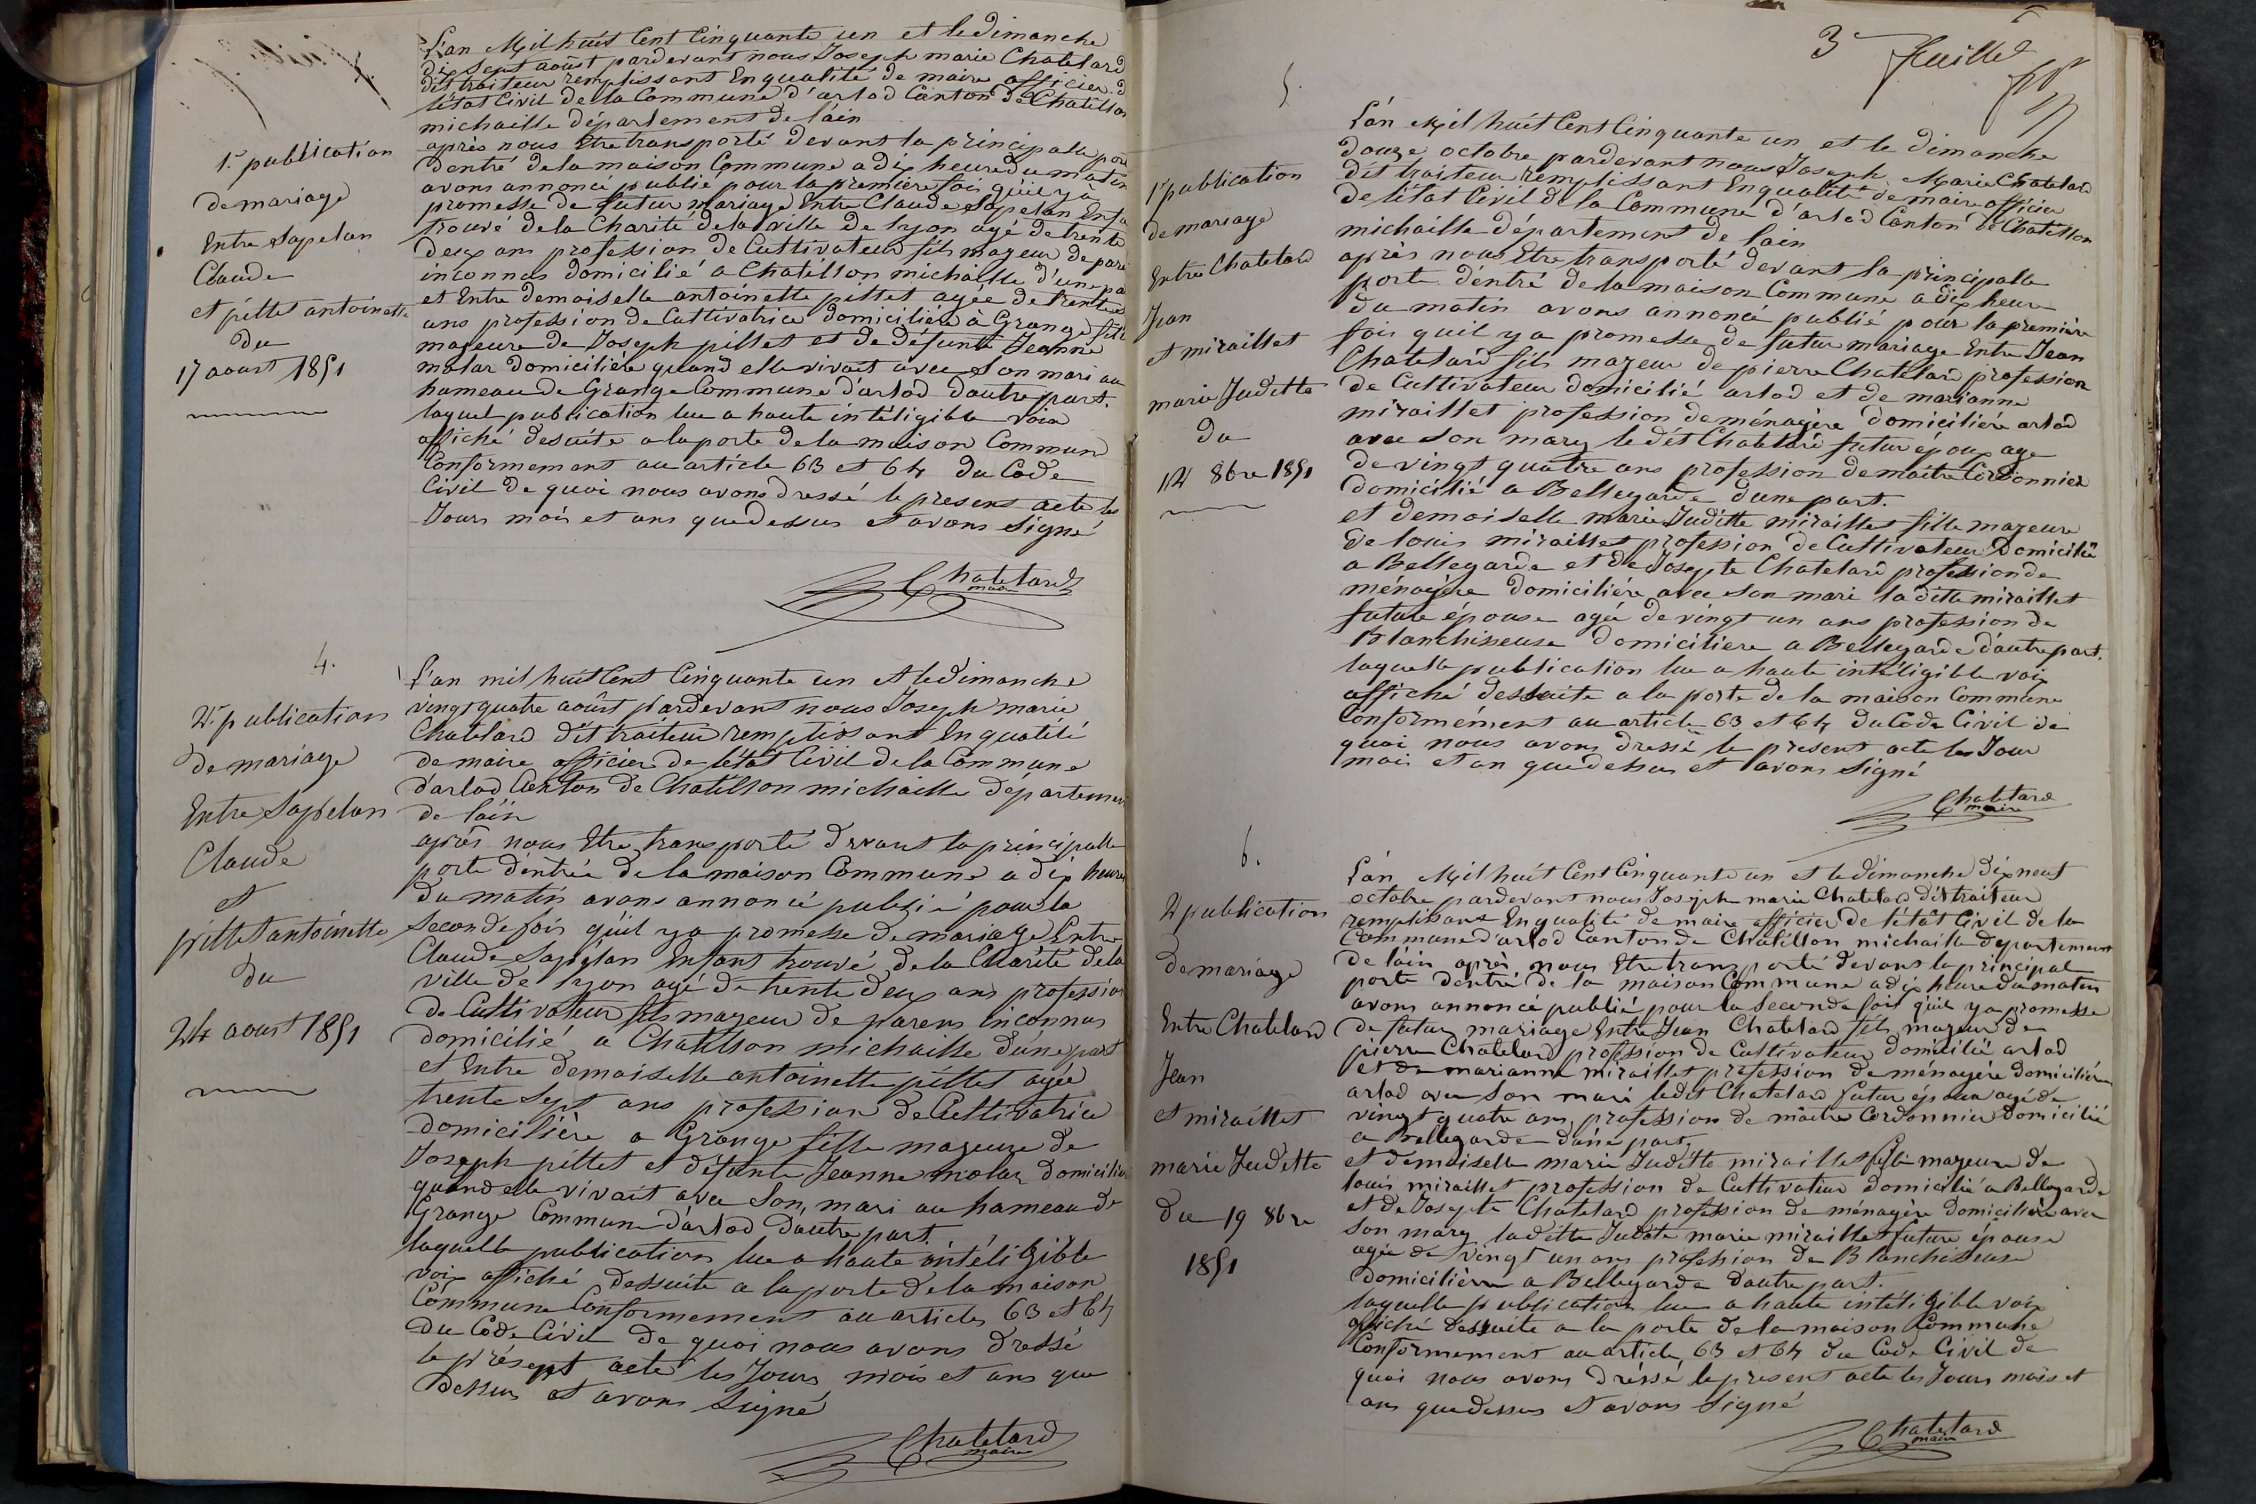 1re publication
de mariage
Entre Sapelan
Claude
et pillet antoinette
du
17 aoust 1851
L'an Mil huit Cent Cinquante un et le dimanche
dix sept août pardevant nous Joseph marie Chatelard
dit traiteur remplissant En qualité de maire officier d
l'état Civil de la Commune d'arlod Canton de Chatillon
michaille département de l'ain
après nous Etre transporté devant la principale port
dentré de la maison Commune a dix heure du matin
avons annoncé publié pour la première fois qu'il y à
promesse de futur mariage Entre Claude Sapelan Enfa
trouvé de la Charité de la ville de Lyon agé de trente
deux ans profession de Cultivateur fils mageur de par
inconnus domicilié a Chatillon michaille d'une pa
et Entre demoiselle antoinette pillet agée de trente
ans profession de Cultivatrice domicilière à Grange fille
mageure de Joseph pillet et de défunte Jeanne
molar domicilière quand elle vivait avec son mari au
hameau de Grange Commune d'arlod dautre part.
laquel publication lue a haute intéligible voix
affiché desuite a la porte de la maison Commune
Conformement au article 63 et 64 du Code
Civil de quoi nous avons dressé le present acte les
Jours mois et ans que dessus et avons signé
Chatelard
maire
4.
2e publication
de mariage
Entre Sapelan
Claude
et
pillet antoinette
du
24 aoust 1851
L'an mil huit Cent Cinquante un et le dimanche
vingt quatre août pardevant nous Joseph marie
Chatelard dit traiteur remplissant En qualité
de maire officier de l'état Civil de la Commune
d'arlod Canton de Chatillon michaille département
de l'ain
après nous Etre transporté devant la principalle
porte d'entrée de la maison Commune a dix heures
du matin avons annoncé publié pour la
seconde fois qu'il y a promesse de mariage Entre
Claude Sapelan Enfant trouvé de la Charité de la
ville de Lyon agé de trente deux ans profession
de Cultivateur fils mageur de parens inconnus
domicilié a Chatillon michaille d'une part
et Entre demoiselle antoinette pillet agée
trente sept ans profession de Cultivatrice
domicilière a Grange fille mageure de
Joseph pillet et défunte Jeanne molar domicilière
quand elle vivait avec son mari au hameau de
Grange Commune d'arlod dautre part.
laquelle publication lue a haute intéligible
voix affiché dessuite a la porte de la maison
Commune Conformement au articles 63 et 64
du Code Civil de quoi nous avons dressé
le présent acte les Jours mois et ans que
dessus et avons signé
Chatelard
maire
3e feuillet
5.
1re publication
de mariage
Entre Chatelard
Jean
et miraillet
marie Juditte
du
12 8bre 1851
L'an Mil huit Cent Cinquante un et le dimanche
douze octobre pardevant nous Joseph Marie Chatelard
dit traiteur remplissant En qualité de maire officier
de l'état Civil de la Commune d'arlod Canton de Chatillon
michaille département de l'ain
après nous Etre transporté devant la principalle
porte d'entré de la maison Commune a dix heure
du matin avons annoncé publié pour la première
fois qu'il y a promesse de futur mariage Entre Jean
Chatelard fils mageur de pierre Chatelard profession
de Cultivateur domicilié arlod et de marianne
miraillet profession de ménagère domicilière arlod
avec son mary le dit Chatelard futur époux age
de vingt quatre ans profession de maître Cordonnier
domicilié a Bellegarde d'une part.
et demoiselle marie Juditte miraillet fille mageure
de louis miraillet profession de Cultivateur domicilié
a Bellegarde et de Josepte Chatelard profession de
ménagère domicilière avec son mari la ditte miraillet
future épouse agée de vingt un ans profession de
Blanchisseuse domiciliere a Bellegarde d'autre part.
laquelle publication lue a haute intéligible voix
affiché dessuite a la porte de la maison Commune
Conformément au article 63 et 64 du Code Civil de
quoi nous avons dressé le present acte les Jour
mois et an que dessus et avons signé
Chatelard
maire
6.
2e publication
de mariage
Entre Chatelard
Jean
et miraillet
marie Juditte
du 19 8bre
1851
L'an Mil huit Cent Cinquante un et le dimanche dix neuf
octobre pardevant nous Joseph marie Chatelard dit traiteur
remplissant En qualité de maire officier de l'état Civil de la
Commune d'arlod Canton de Chatillon michaille departement
de l'ain après nous Etre transporté devant la principal
porte dentré de la maison Commune a dix heure du matin
avons annoncé publié pour la seconde fois qu'il y a promesse
de futur mariage Entre Jean Chatelard fils mageur de
pierre Chatelard profession de Cultivateur domicilié arlod
et de marianne miraillet profession de ménagère domicilière
arlod avec son mari le dit Chatelard futur époux agé de
vingt quatre ans profession de maître Cordonnier domicilié
a Bellegarde d'une part,
et demoiselle marie Juditte miraillet fille mageure de
louis miraillet profession de Cultivateur domicilié a Bellegarde
et de Josepte Chatelard profession de ménagère domicilière avec
son mary laditte Juditte marie miraillet future épouse
agée de vingt un ans profession de Blanchisseuse
domicilière a Bellegarde dautre part.
laquelle publication lue a haute intéligible voix
affiché dessuite a la porte de la maison Commune
Conformement au article 63 et 64 du Code Civil de
quoi nous avons dressé le present acte les Jours mois et
ans que dessus et avons signé
Chatelard
maire